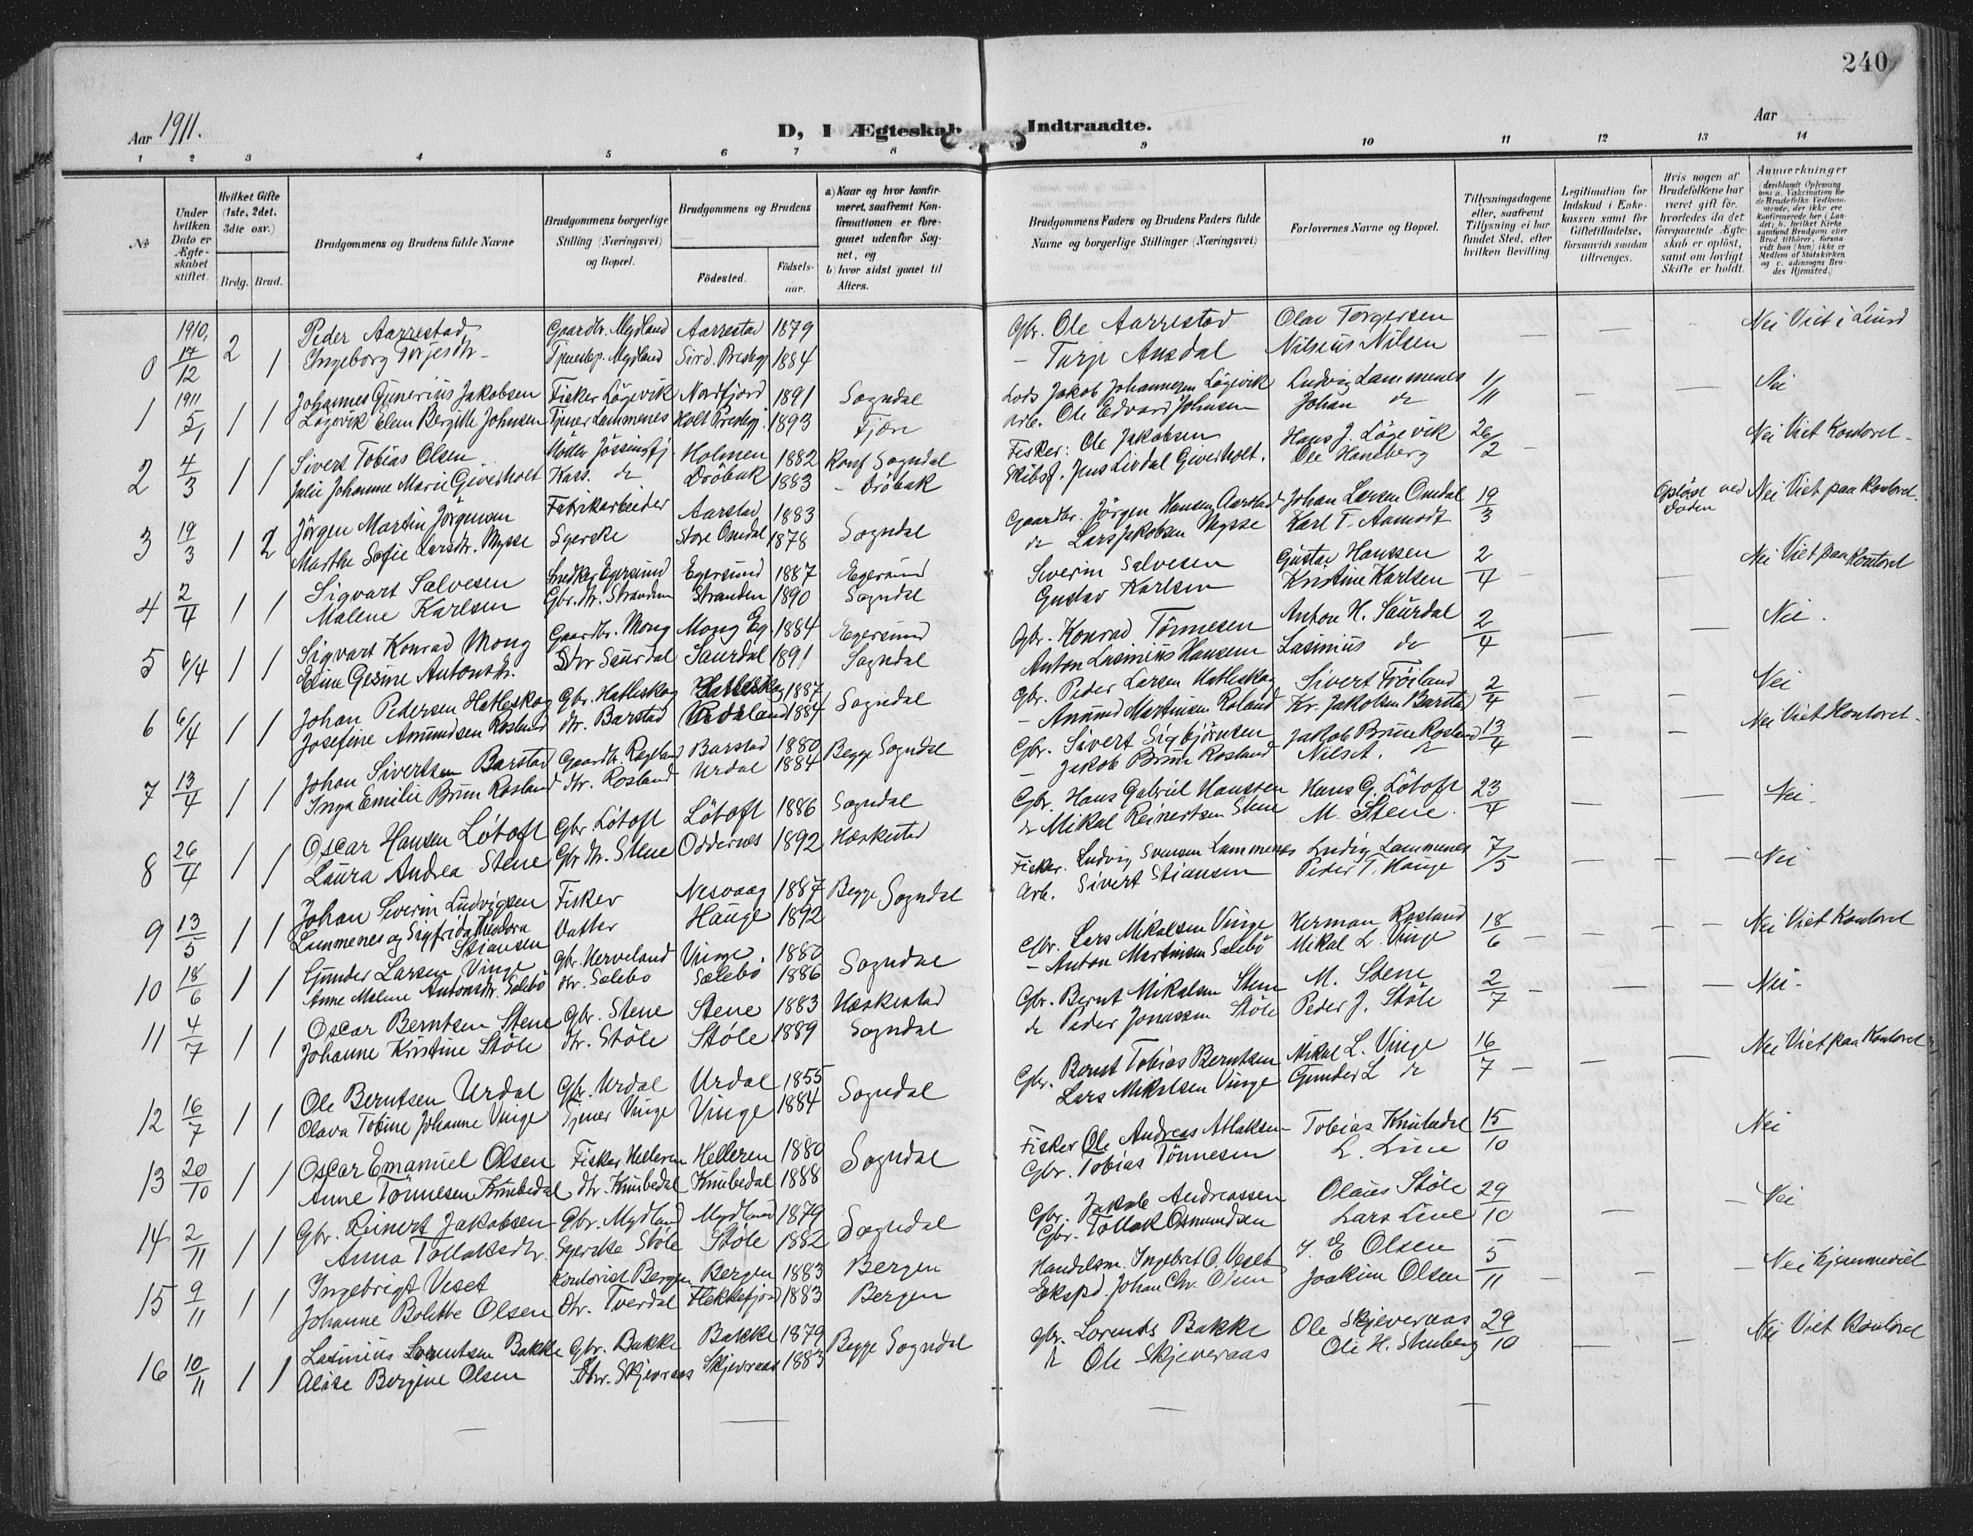 240
Aar 1911.
D, I Ægteskab Indtraadte.
Aar
1 2 3 4 5 6 7 8 9 10 11 12 13 14
No
Under hvilken Dato er Ægteskabet stiftet.
Hvilket Gifte (1ste, 2det, 3die osv.)
Brdg. Brud.
Brudgommens og Brudens fulde Navne
Brudgommens borgerlige Stilling (Næringsvei) og Bopæl.
Brudgommens og Brudens
Fødested. Fødselsaar.
a) Naar og hvor konfirmeret, saafremt Konfirmationen er foregaaet udenfor Sognet, og b) hvor sidst gaaet til Alters.
Brudgommens Faders og Brudens Faders fulde Navne og borgerlige Stillinger (Næringsvei)
Forlovernes Navne og Bopæl.
Tillysningsdagene eller, saafremt Tillysning ei har fundet Sted, efter hvilken Bevilling.
Legitimation for Indskud i Enkekassen samt for Giftetilladelse, forsaavidt saadan tiltrænges.
Hvis nogen af Brudefolkene har været gift før, hvorledes da det foregaaende Ægteskab er opløst, samt om lovligt Skifte er holdt.
Anmærkninger
0 1910, 17/12 2 1 Peder Aarrestad Gaardbr. Mydland Aarrestad 1879 Gbr. Ole Aarrestad Olav Torgersen — Nei Viet i Lund
Ingeborg Torjesdtr. Tjenestep. Mydland Sird. Prestegj. 1884 — Torje Ausdal Nilsius Nilsen
1 1911 5/1 1 1 Johannes Gunerius Jakobsen Fisker Løgevik Nordfjord 1891 Sogndal Lods Jakob Johannesen Løgevik Ludvig Lammenes 1/11 — Nei
Løgevik Elen Bergitte Johnsen Tjener Lammenes Holt Prestegj. 1893 Fjære Arb. Ole Edvard Johnsen Johan do
2 4/3 1 1 Sivert Tobias Olsen Jøssingfj. Holmen 1882 Konf Sogndal Fisker: Ole Jakobsen Hans J. Løgevik 26/2 — Nei Viet Kontoret
Julie Johanne Marie Giverholt Kass. do Drøbak 1883 — Drøbak Skibsf. Jens Livdal Giverholt. Ole Haneberg
3 19/3 1 2 Jörgen Martin Jörgensen Fabrikarbeider Aarstad 1883 Sogndal Gaardbr. Jörgen Hansen Aarstad Johan Larsen Omdal 19/3 Opløst ved Døden Nei Viet paa Kontoret
Marthe Sofie Larsdtr. Mysse Syerske Store Omdal 1878 do Lars Jakobsen Mysse Karl T. Aamodt
4 2/4 1 1 Sigvart Salvesen Snedker Egersund Egersund 1887 Egersund Severin Salvesen Gustav Hanssen 2/4 — Nei Viet paa Kontoret
Malene Karlsen Gbr. dtr. Stranden Stranden 1890 Sogndal Gustav Karlsen Kristine Karlsen
5 6/4 1 1 Sigvart Konrad Mong Gaardbr. Mong Mong Eg. 1884 Egersund Gbr. Konrad Tönnesen Anton H. Saurdal 2/4 — Nei.
Eline Gesine Antonsdtr. Dtr Saurdal Saurdal 1891 Sogndal Anton Lasinius Hansen Lasinius do
6 6/4 1 1 Johan Pedersen Hatleskog Gbr. Hatleskog Hatleskog 1887 Sogndal Gbr. Peder Larsen Hatleskog Sivert Fröiland 2/4 — Nei
Josefine Amundsen Rosland dtr. Barstad 1884 — Amund Martinsen Roland Kr. Jakobsen Barstad
7 13/4 1 1 Johan Sivertsen Barstad Gaardbr. Rosland Barstad 1880 Begge Sogndal Gbr. Sivert Sigbjörnsen Jakob Brun Rosland 13/4 — Nei Viet Kontoret
Inga Emilie Brun Rosland dtr. Rosland Urdal 1884 — Jakob Brun Rosland Nilset. do
8 26/4 1 1 Oscar Hansen Lötoft Gbr Lötoft Lötoft 1886 Sogndal Gbr. Hans Gabriel Hanssen Hans G. Lötoft 23/4 — Nei.
Laura Andrea Stene Gbr dtr. Stene Oddernes 1892 Heskestad do Mikal Reinertsen Stene M. Stene.
9 13/5 1 1 Johan Severin Ludvigsen Fisker Nesvaag 1887 Begge Sogndal Fisker. Ludvig Svensen Lammenes Ludvig Lammenes 7/5 — Nei
Lammenes og Sigfrida Theodora Stiansen Datter Hauge 1892 Arb. Sivert Stiansen Peder T. Hauge
10 18/6 1 1 Gunder Larsen Vinge Gbr. Nerveland Vinge. 1880 Sogndal Gbr. Lars Mikalsen Vinge Herman Rosland 18/6 — Nei Viet Kontoret
Anne Malene Antonsdtr. Sælebö dtr. Sælebö Sælebö 1886 — Anton Martinsen Salebö Mikal L. Vinge
11 4/7 1 1 Oscar Berntsen Stene Gbr. Stene Stene 1883 Heskestad Gbr. Bernt Mikalsen Stene M. Stene 2/7 — Nei.
Johanne Kristine Støle dtr. Støle Støle 1889 Sogndal do Peder Jonassen Støle Peder J. Støle
12 16/7 1 1 Ole Berntsen Urdal Gbr. Urdal Urdal 1855 Sogndal Gbr. Bernt Tobias Berntsen Mikal L. Vinge 16/7 — Nei Viet paa Kontoret
Olava Tobine Johanne Vinge Tjener Vinge Vinge 1884 Lars Mikalsen Vinge Gunder L do
13 20/10 1 1 Oscar Emanuel Olsen Fisker Helleren Helleren 1880 Sogndal Fisker Ole Andreas Atlaksen Tobias Knubedal 15/10 Nei
Anne Tönnesen Knubedal dtr. Knubedal Knubedal 1888 Gbr. Tobias Tönnesen L. Line
14 2/11 1 1 Gbr. Reinert Jakobsen Gbr. Mydland Mydland 1879 Sogndal Gbr. Jakob Andreassen Olaus Støle 29/10 — Nei
Anna Tollaksdtr. Syerske Støle Støle 1882 Gbr. Tollak Osmundsen Lars Line
15 9/11 1 1 Ingebrigt Veset Kontorist Bergen Bergen 1883 Bergen Handelsm. Ingebret O. Veset J. E Olsen 5/11 — Nei hjemmeviet
Johanne Bolette Olsen Dtr. Tverdal Flekkefjord 1883 Bergen Ekspd. Johan Chr. Olsen Joakim Olsen
16 10/11 1 1 Lasinius Lorentsen Bakke Gbr. Bakke Bakke 1879 Begge Sogndal Gbr. Lorents Bakke Ole Skjeveraas 29/10 — Nei Viet Kontoret
Aløise Bergine Olsen Dtr. Skjevraas Skjevraas 1883 do Ole Skjeveraas Ole H. Stenberg